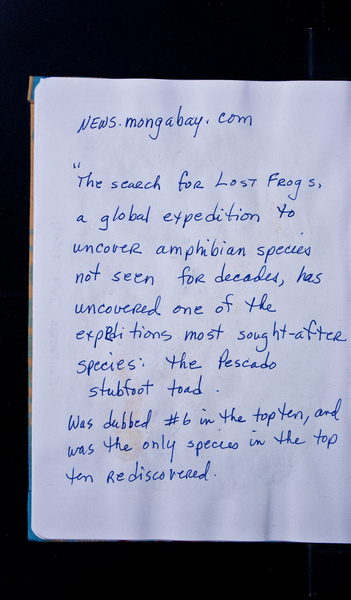 NEWS.mongabay.com
"The search for Lost Frogs,
a global expedition to
uncover amphibian species
not seen for decades, has
uncovered one of the
expeditions most sought-after
species: the Pescado
stubfoot toad.
Was dubbed #6 in the top ten, and
was the only species in the top
ten rediscovered.